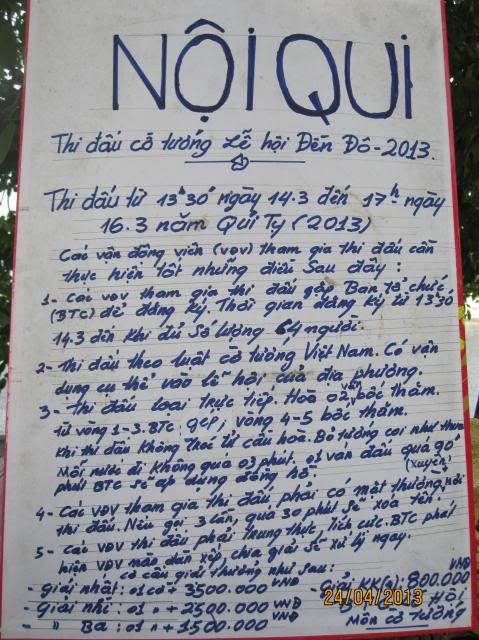 NỘI QUI
Thi đấu cờ tướng Lễ hội Đền Đô - 2013.
Thi đấu từ 13h30' ngày 14.3 đến 17h ngày
16.3 năm Quí Tỵ (2013)
Các vận động viên (VĐV) tham gia thi đấu cần
thực hiện tốt những điều sau đây:
1- Các VĐV tham gia thi đấu gặp Ban tổ chức
(BTC) để đăng ký. Thời gian đăng ký từ 13h30
14.3 đến khi đủ số lượng 64 người.
2- Thi đấu theo luật cờ tướng Việt Nam. Có vận
dụng cụ thể vào lễ hội của địa phương.
3- Thi đấu loại trực tiếp. Hoà 02 ván bốc thăm.
Từ vòng 1-3. BTC ghép, vòng 4-5 bốc thăm.
Khi thi đấu không tự cầu hoà. Bỏ tướng coi như thua
Mỗi nước đi không quá 03 phút. 01 ván đấu quá 90
phút BTC sẽ áp dụng đồng hồ.
4- Các VĐV tham gia thi đấu phải có mặt thường xuyên nơi
thi đấu. Nếu gọi 3 lần, quá 30 phút sẽ xóa tên.
5- Các VĐV thi đấu phải trung thực, tích cực. BTC phát
hiện VĐV nào dàn xếp chia giải sẽ xử lý ngay.
Cơ cấu giải thưởng như sau:
- Giải nhất: 01 cờ + 3500.000 VNĐ
- Giải KK(4): 800.000 VNĐ
- Giải nhì: 01 " + 2500.000 VNĐ
Hội
- " Ba: 01 " + 1500.000 VNĐ
Môn cờ tướng
24/04/2013